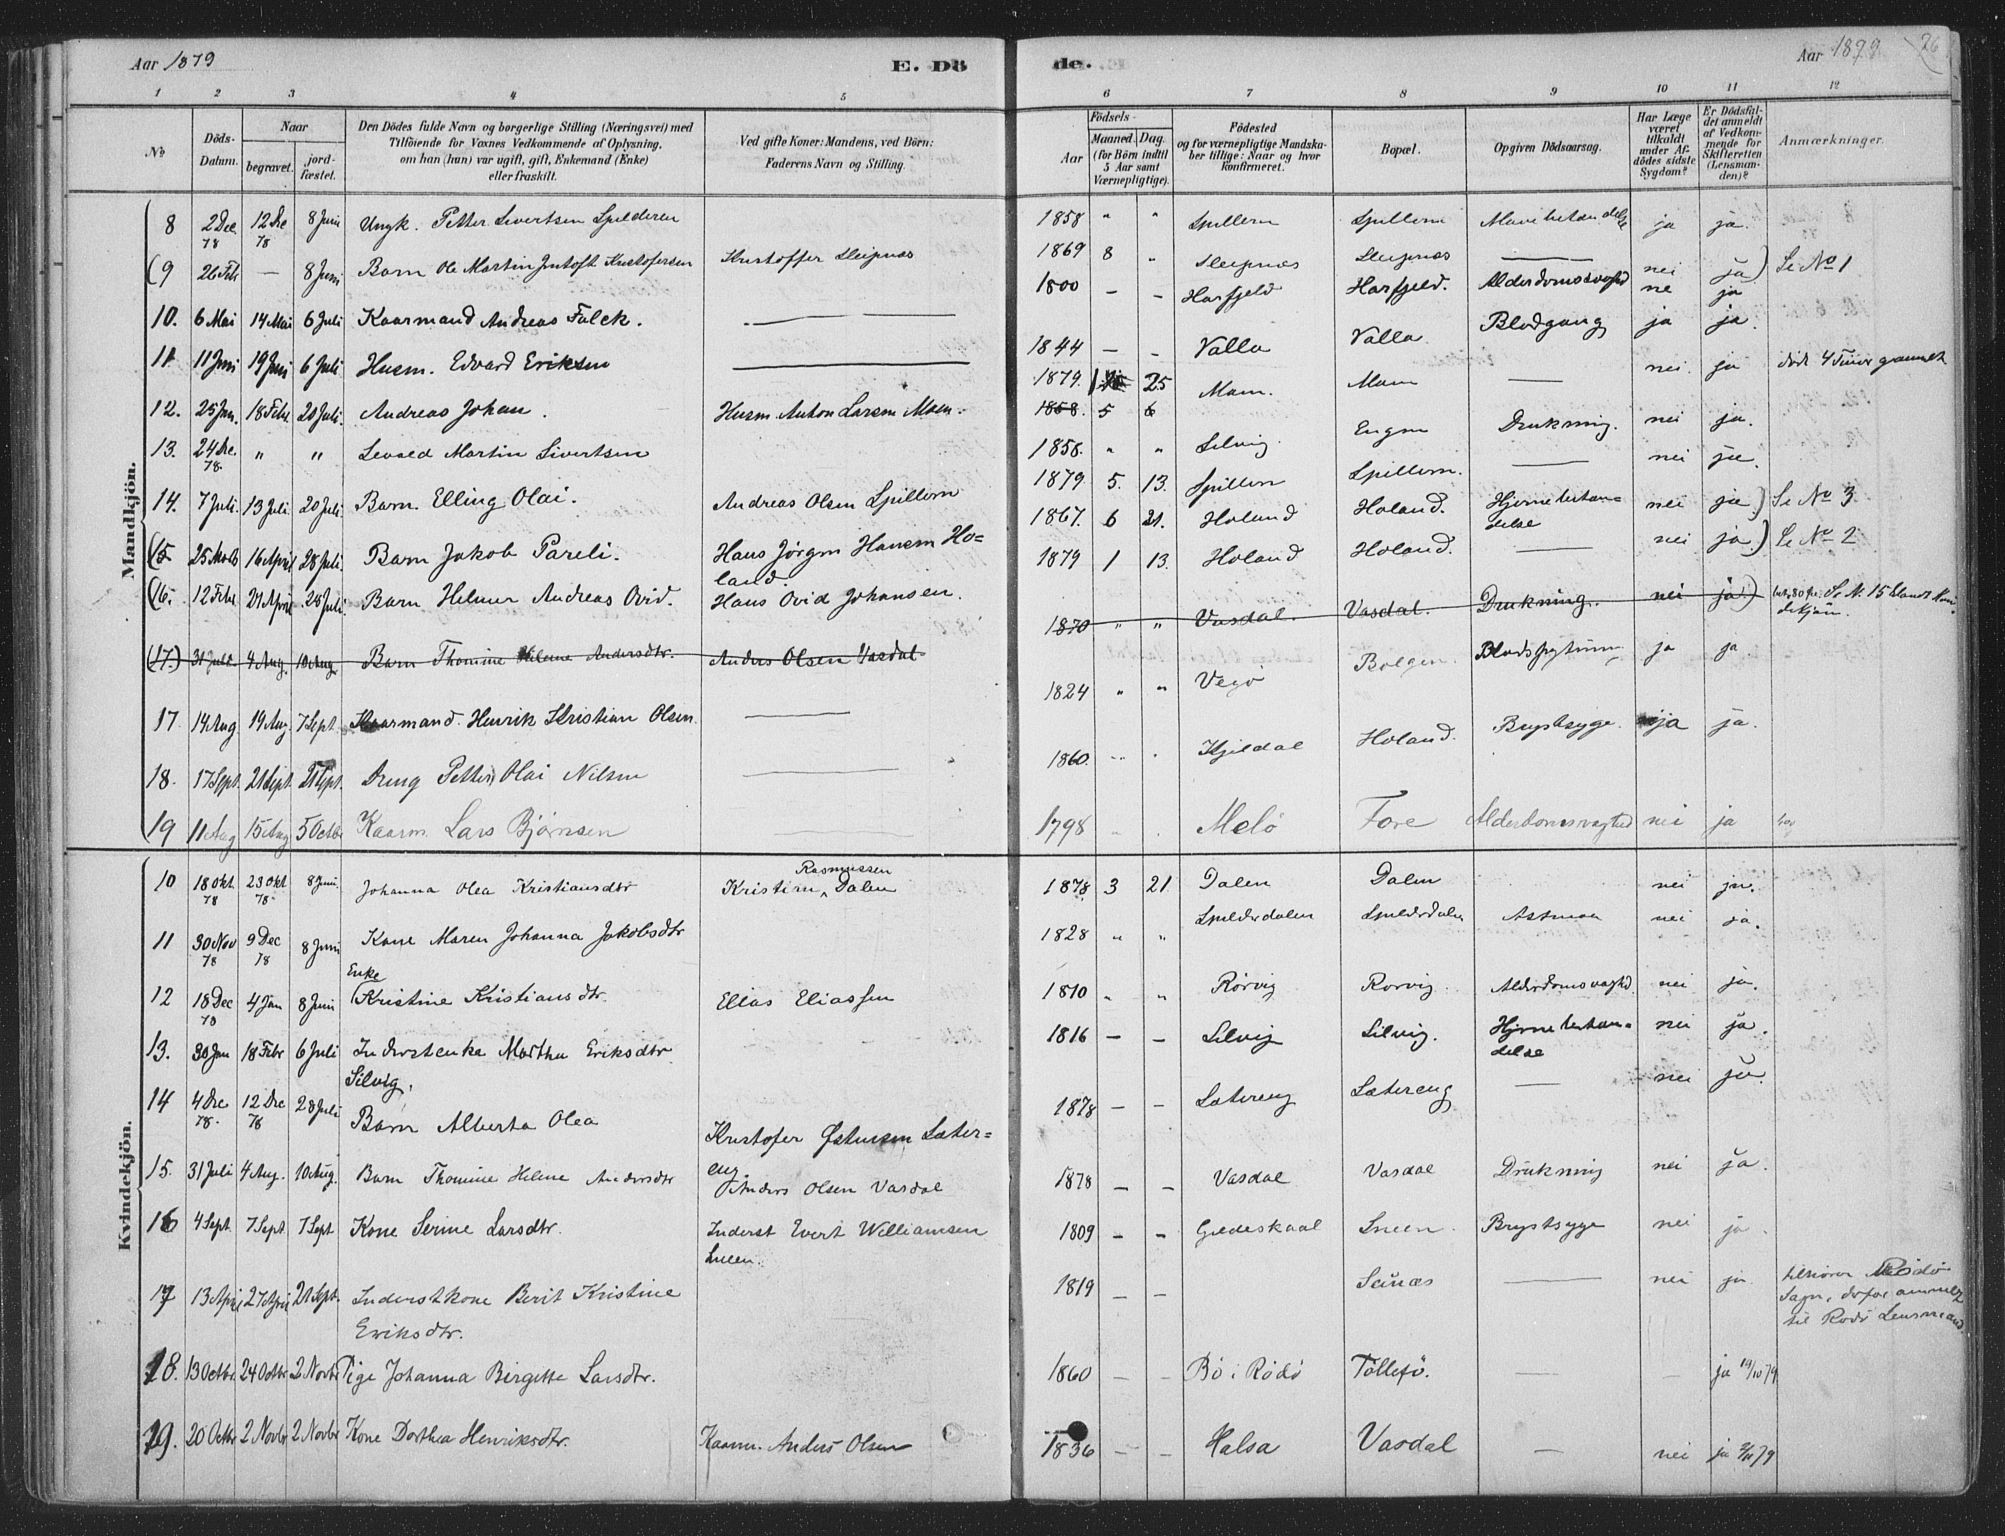 Aar 1879
E. Dö
de.
Aar 1879
26
1 2 3 4 5 6 7 8 9 10 11 12
No
Döds-Datum.
Naar
begravet.
jord-fæstet.
Den Dödes fulde Navn og borgerlige Stilling (Næringsvei) med
Tilföiende for Voxnes Vedkommende af Oplysning,
om han (hun) var ugift, gift, Enkemand (Enke)
eller fraskilt.
Ved gifte Koner: Mandens, ved Börn:
Faderens Navn og Stilling.
Födsels-
Aar
Maaned. Dag.
(for Börn indtil
5 Aar samt
Værnepligtige).
Födested
og for værnepligtige Mandska-
ber tillige: Naar og hvor
konfirmeret.
Bopæl.
Opgiven Dödsaarsag.
Har Læge
været
tilkaldt
under Af-
dödes sidste
Sygdom?
Er Dödsfal-
det anmeldt
af Vedkom-
mende for
Skifteretten
(Lensman-
den)?
Anmærkninger.
Mandkjön.
8 2 Dec 78 12 Dec 78 8 Juni Ungk. Petter Sivertsen Spilderen 1858 " " Spillern Spillern Mavebetændelse ja ja.
(9 26 Feb — 8 Juni Barn Ole Martin Kristofersen Kristoffer Sleipnæs 1869 8 " Sleipnæs Sleipnæs — nei ja) Se No 1
10. 6 Mai 14 Mai 6 Juli Kaarmand Andreas Falck. — 1800 — — Harfjeld Harfjeld. ne ja
11 11 Juni 19 Juni 6 Juli Husm. Edvard Eriksen — 1844 — — Valla Valla Blodgang ja ja.
12. 25 Jan. 18 Febr. 20 Juli. Andreas Johan. Husm. Anton Larsen Moen. 1879. 1 25 Moen. Moen — nei. ja død 4 Timer gammel
13. 24 Dec. 78. " " Sivertsen 1858. 5 6 Engen Drukning. nei ja.
1858. " " Selvig.
14. 7 Juli. 13 Juli. 20 Juli. Barn. Elling Olai. Andreas Olsen Spillern 1879. 5. 13. Spillern Spillern. — nei ja.
(15 16 April 28 Juli. Barn Jakob Pareli. Hans Jørgen Hansen Ho-
land. 1867. 6 21. Holand Holand. Hjernebetæn-
delse nei ja) Se No 3
(16. 12 Febr 21 April 28 Juli. Barn Helmer Andreas Ovid. Hans Ovid Johansen. 1879 1 13. Holand Holand. — nei ja.) Se No 2
(17.) 31 Juli. 4 Aug. 10 Aug Barn Thomine Helene Andersdtr. Anders Olsen Vasdal 1870 " " Vasdal. Vasdal. Drukning. nei ja) Se No 15 blandt Kvin-
dekjøn.
17. 14 Aug 19 Aug. 7 Sept. Kaarmand. Henrik Kristian Olsen. — 1824 " " Vegø Bolgen. Blodspytning ja ja
18. 17 Sept. 21 Sept. 21 Sept. Dreng Petter Olai Nilsen — 1860. " " Kjeldal Holand. Brystsyge. ja ja.
19 11 Aug 15 Aug 5 Octbr Kaarm. Lars Bjørnsen — 1798 " . Melö Fore Alderdomssvaghed nei ja
Kvindekjön.
10 18 Okt. 78 23 Okt 78. 8 Juni. Johanna Olea Kristiansdtr Kristian Rasmussen Dalen 1878 3 21 Dalen Dalen nei ja.
11 30 Nov 78 9 Dec 78 8 Juni Kone Maren Johanna Jakobsdtr 1828 " " Spilderdalen Spilderdalen Astma nei ja.
12 18 Dec 78 4 Jan 8 Juni Enke Kristine Kristiansdtr. Elias Eliassen 1810 " " Rørvig Rørvig. Alderdomssvaghd. nei ja.
13. 30 Jan 18 Febr 6 Juli Inderstenke Martha Eriksdtr
Silvig. 1816 — — Silvig Silvig. Hjernebetæn-
delse nei ja.
14 4 Dec 78. 12 Dec 78 28 Juli Barn Alberta Olea Kristofer Østensen Sæter-
eng. 1878 — — Sætereng Sætereng — nei ja.
15. 31 Juli 4 Aug. 10 Aug. Barn Thomine Helene Andersdtr Anders Olsen Vasdal 1878 — — Vasdal Vasdal Drukning nei ja.
16 4 Sept. 7 Sept 7 Sept Kone Serine Larsdtr. Inderst Evert Williamsen
Sneen. 1809 — — Gildeskaal Sneen. Brystsyge nei ja.
17 13 April 27 April 21 Sept. Inderstkone Berit Kristine
Eriksdtr. 1819 — — — nei ja. tilhører Rødø
Sogn, derfor anmeldt
til Rødø Lensmand
18. 13 Octbr. 24 Octbr 2 Novbr Pige Johanna Birgitte Larsdtr. 1860 — — Bø i Rødø — — ja 19/10 79
19. 20 Octbr 2 Novbr 2 Novbr Kone Dorthea Henriksdtr. Kaarm. Anders Olsen 1836 — — Halsa Vasdal — nei ja 2/11 79